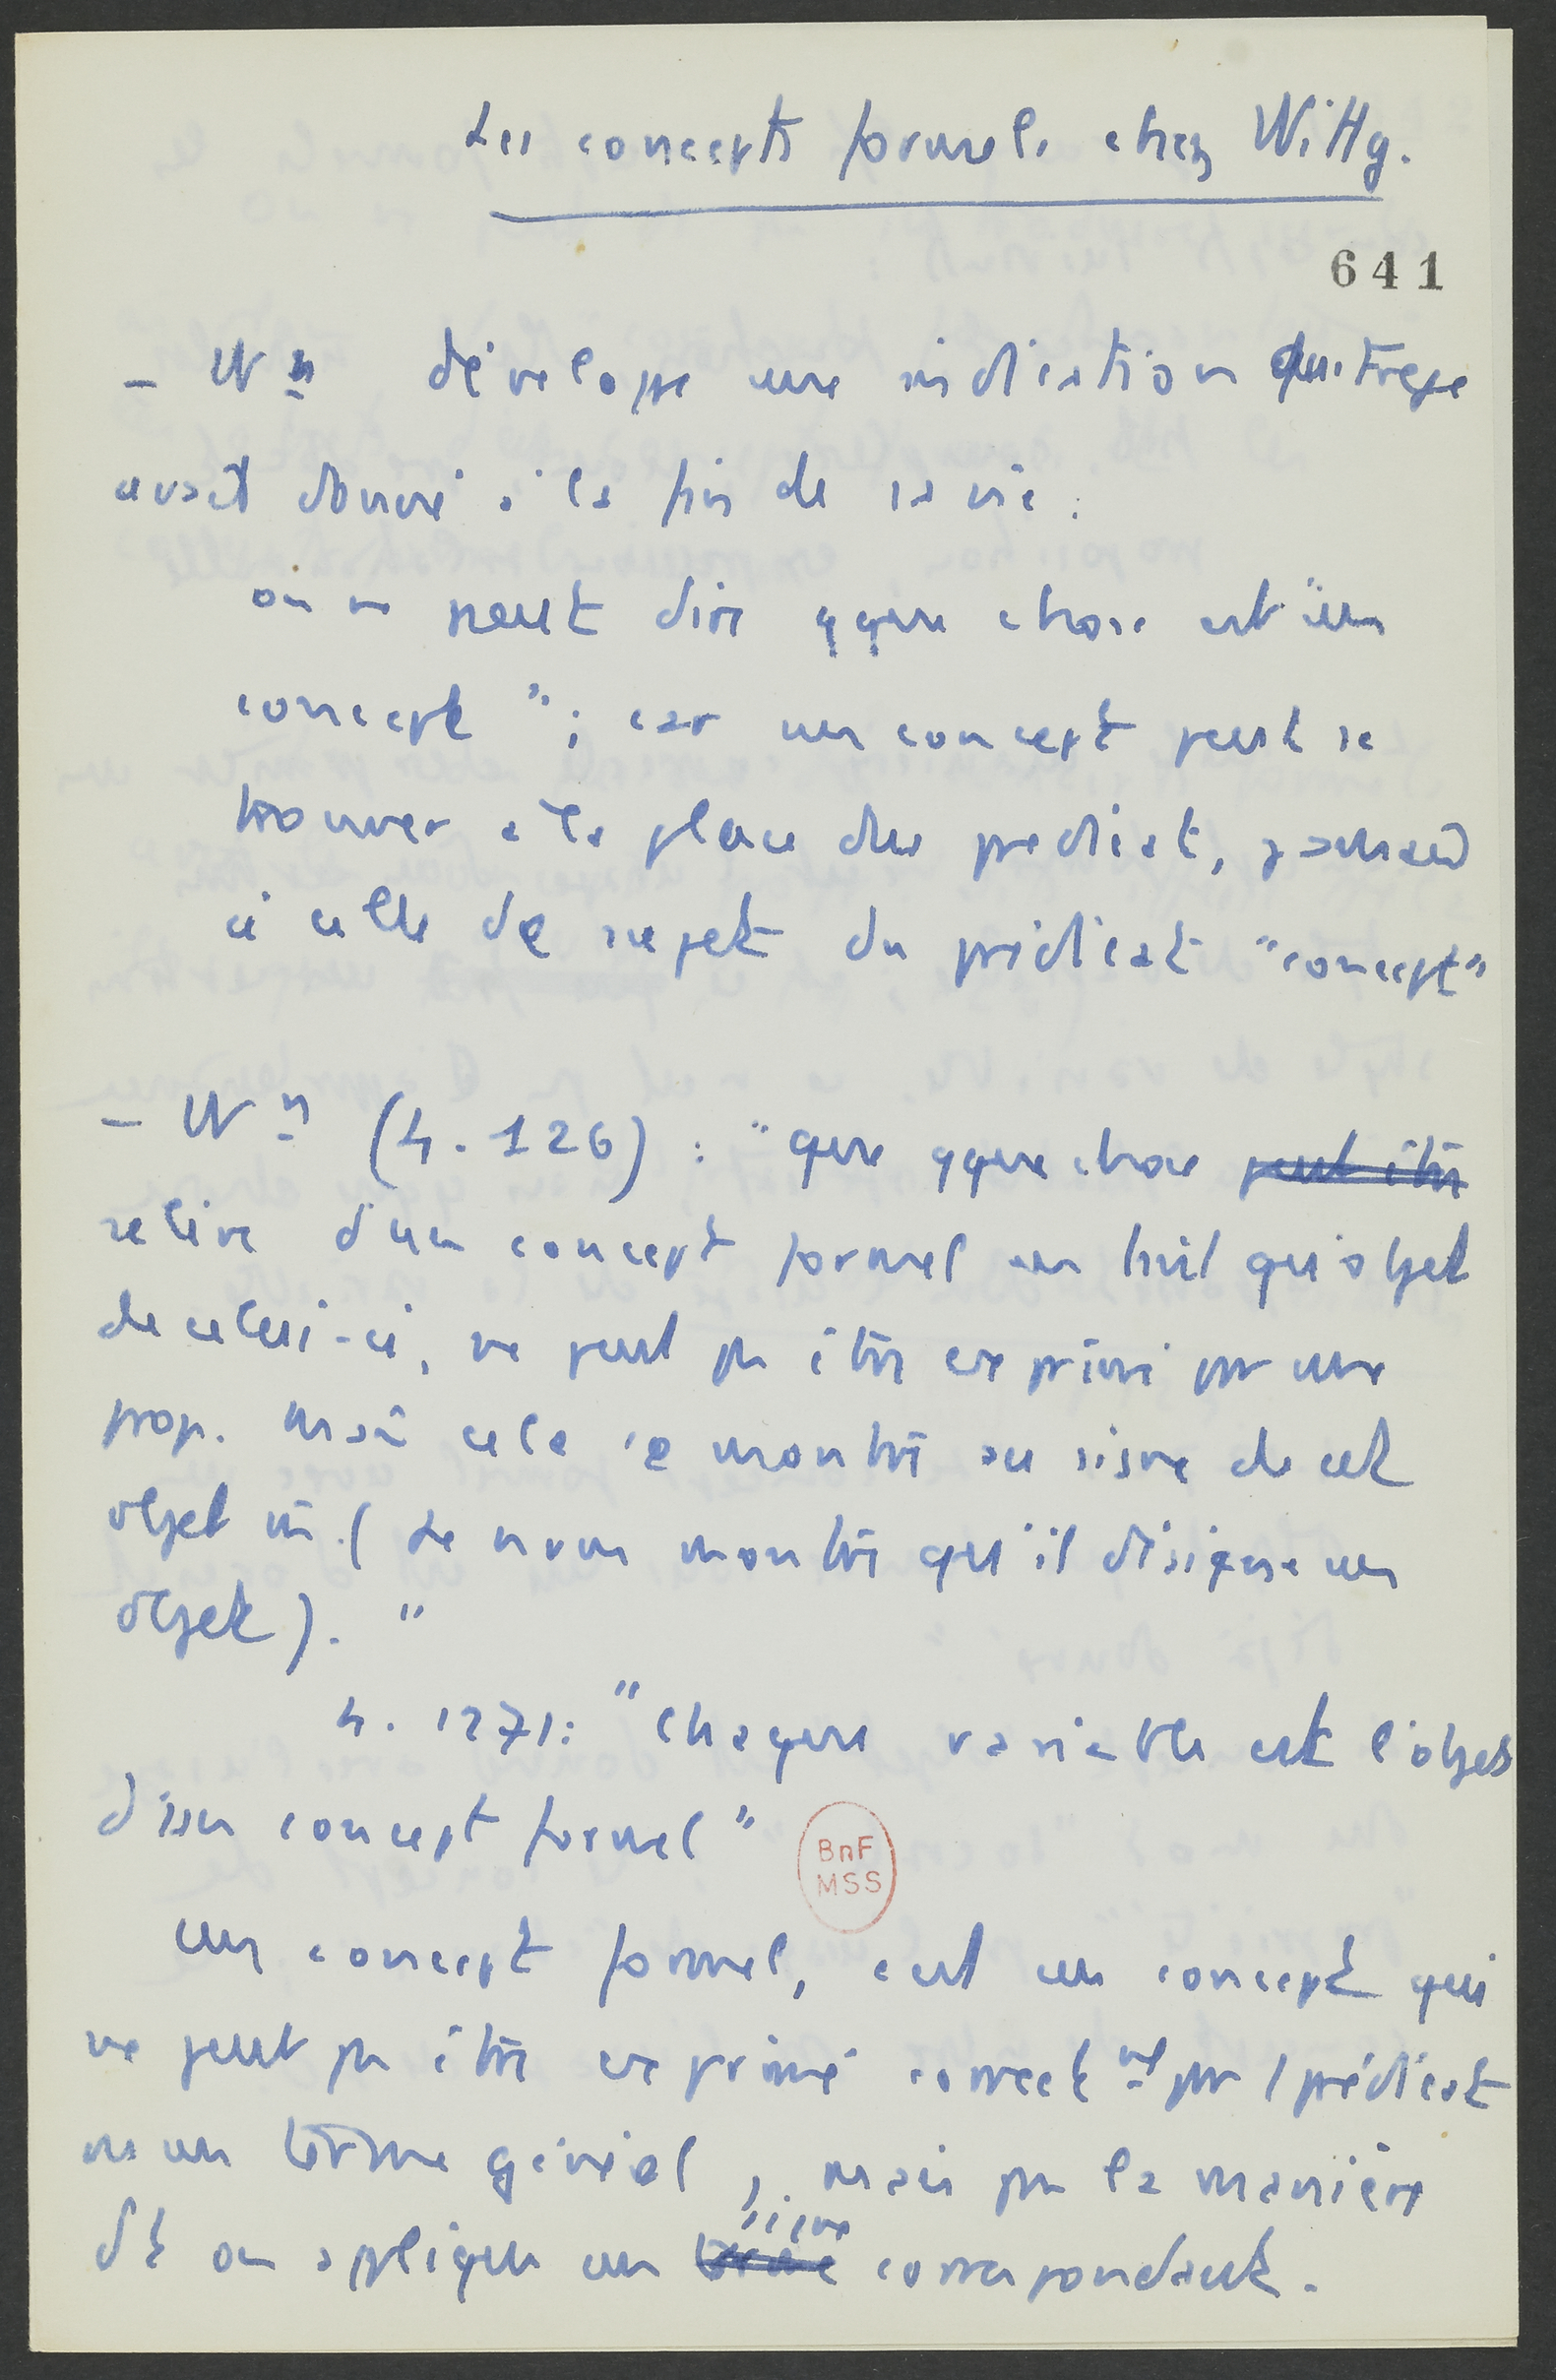 Les concepts formels chez Wittg.
641
– Wn développe une indication que Frege
avait donné à la fin de sa vie :
on ne peut dire qque chose est "un
concept" ; car un concept peut se
trouver à la place du prédicat, jamais
à celle de sujet du prédicat "concept"
– Wn (4.126) : "que qque chose peut être
relève d'un concept formel en tant qu'objet
de celui-ci, ne peut pas être exprimé par une
prop. Mais cela se montre au signe de cet
objet mê. (Le nom montre qu'il désigne un
objet). "
4.1271 : "Chaque variable est l'objet
d'un concept formel"
BnF
MSS
Un concept formel, c'est un concept qui
ne peut pas être exprimé correctmt par 1 prédicat
ou un terme général, mais par la manière
dt on applique un signe correspondant.